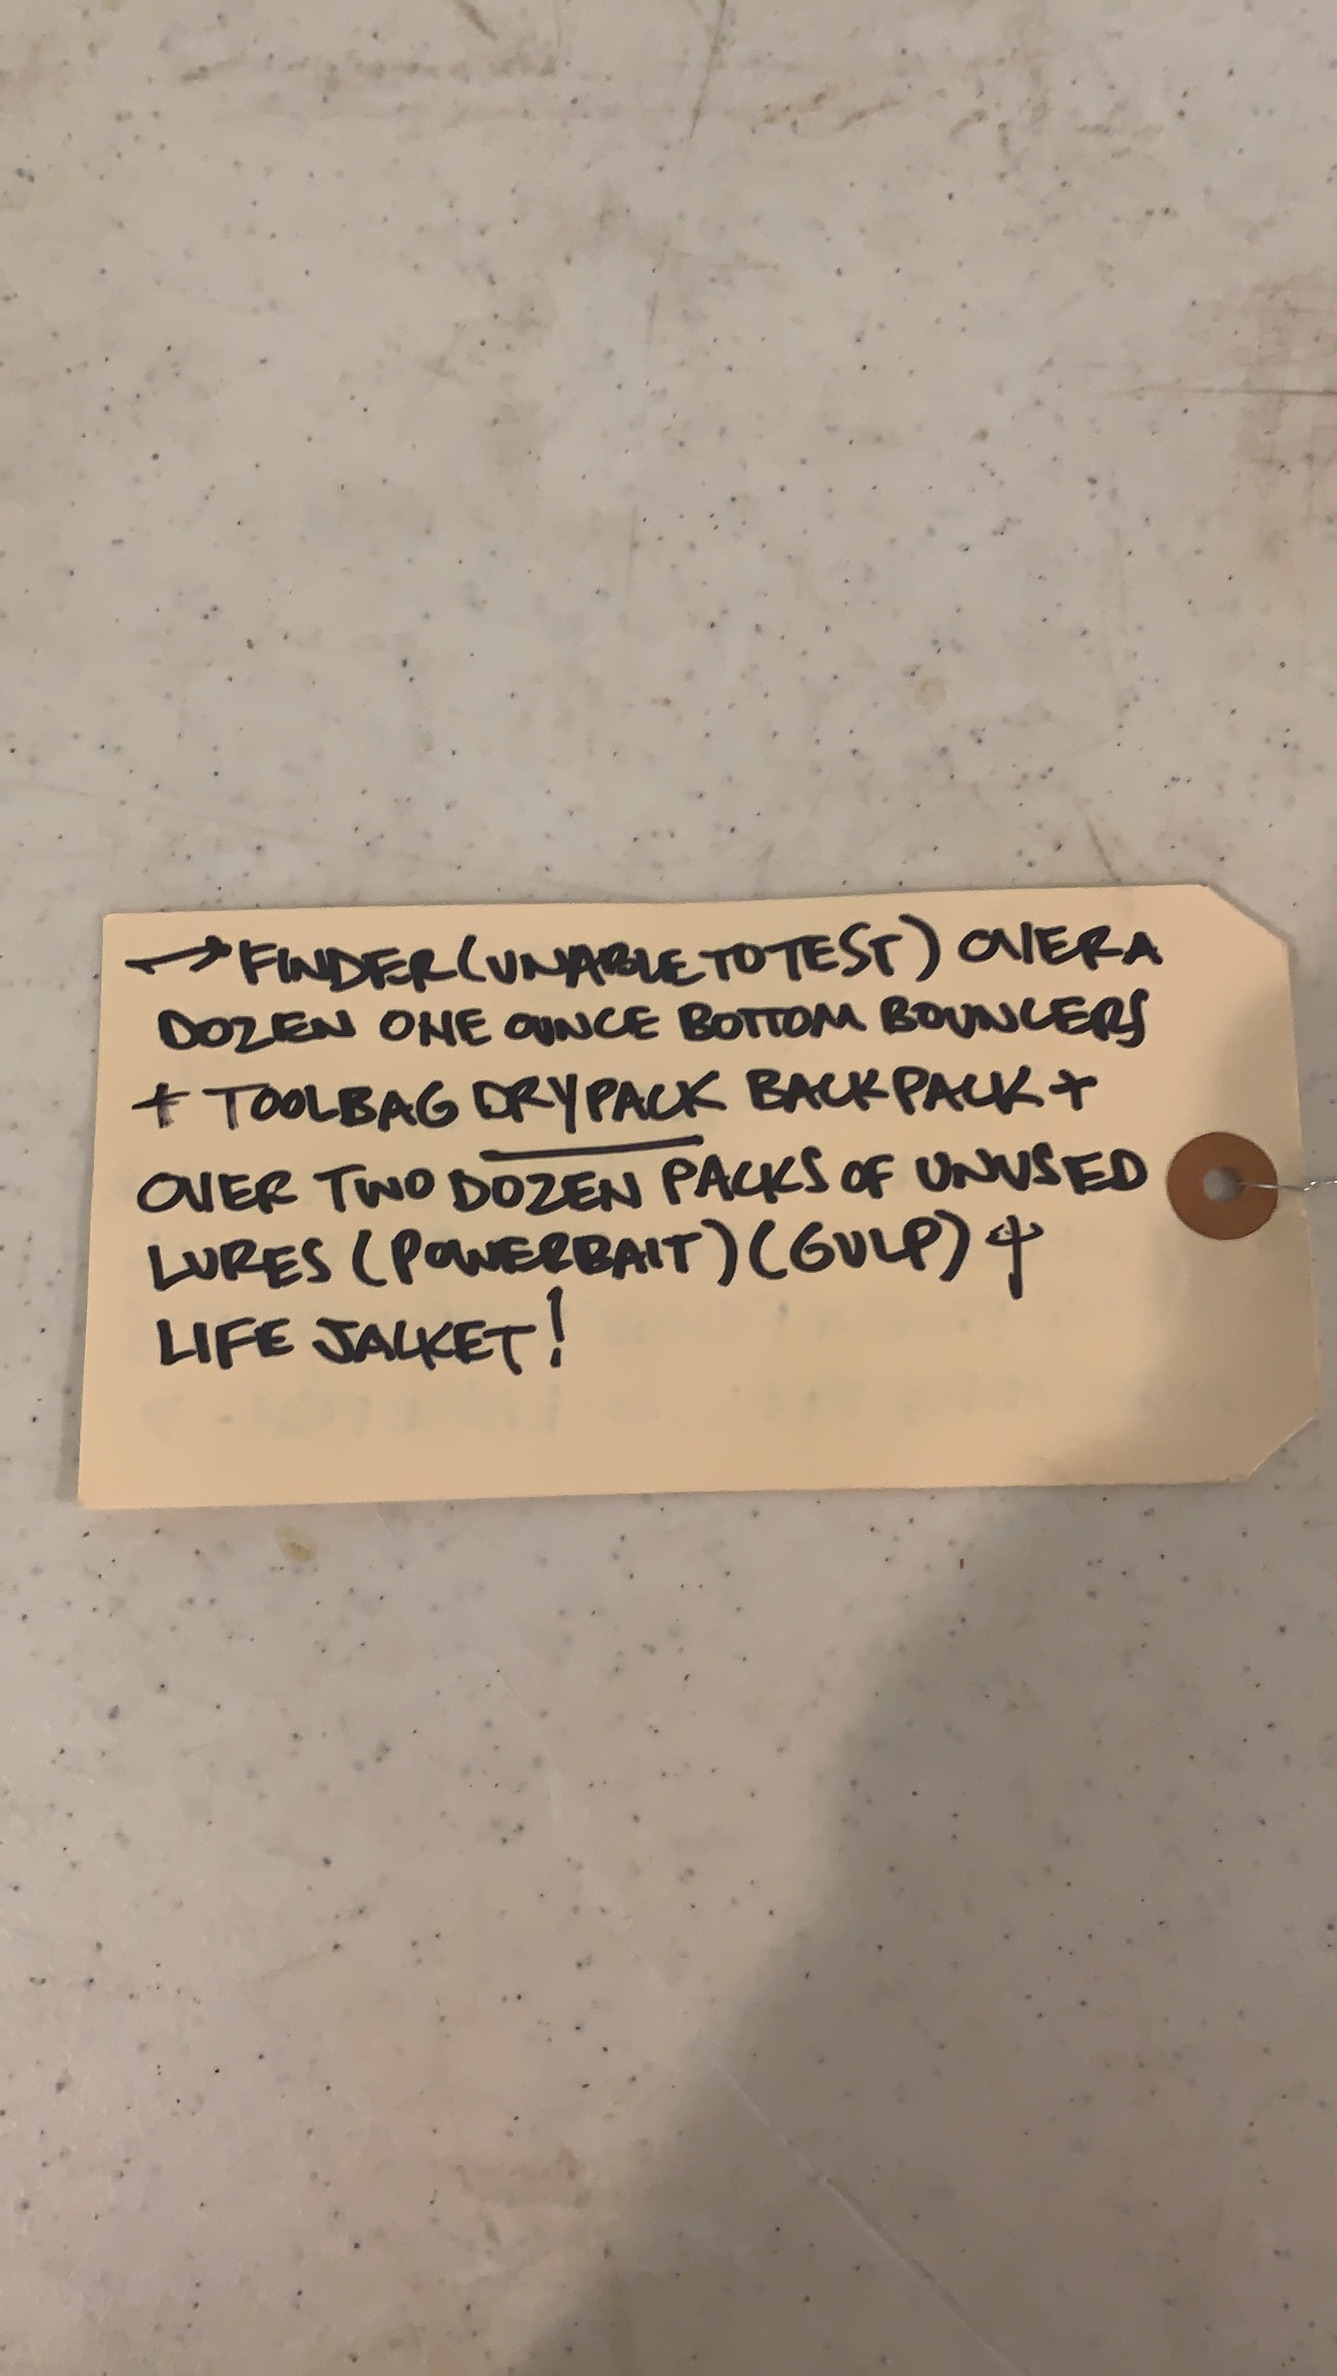 → FINDER (UNABLE TO TEST) OVER A
DOZEN ONE OUNCE BOTTOM BOUNCERS
+ TOOLBAG DRYPACK BACKPACK +
OVER TWO DOZEN PACKS OF UNUSED
LURES (POWERBAIT) (GULP) +
LIFE JACKET!